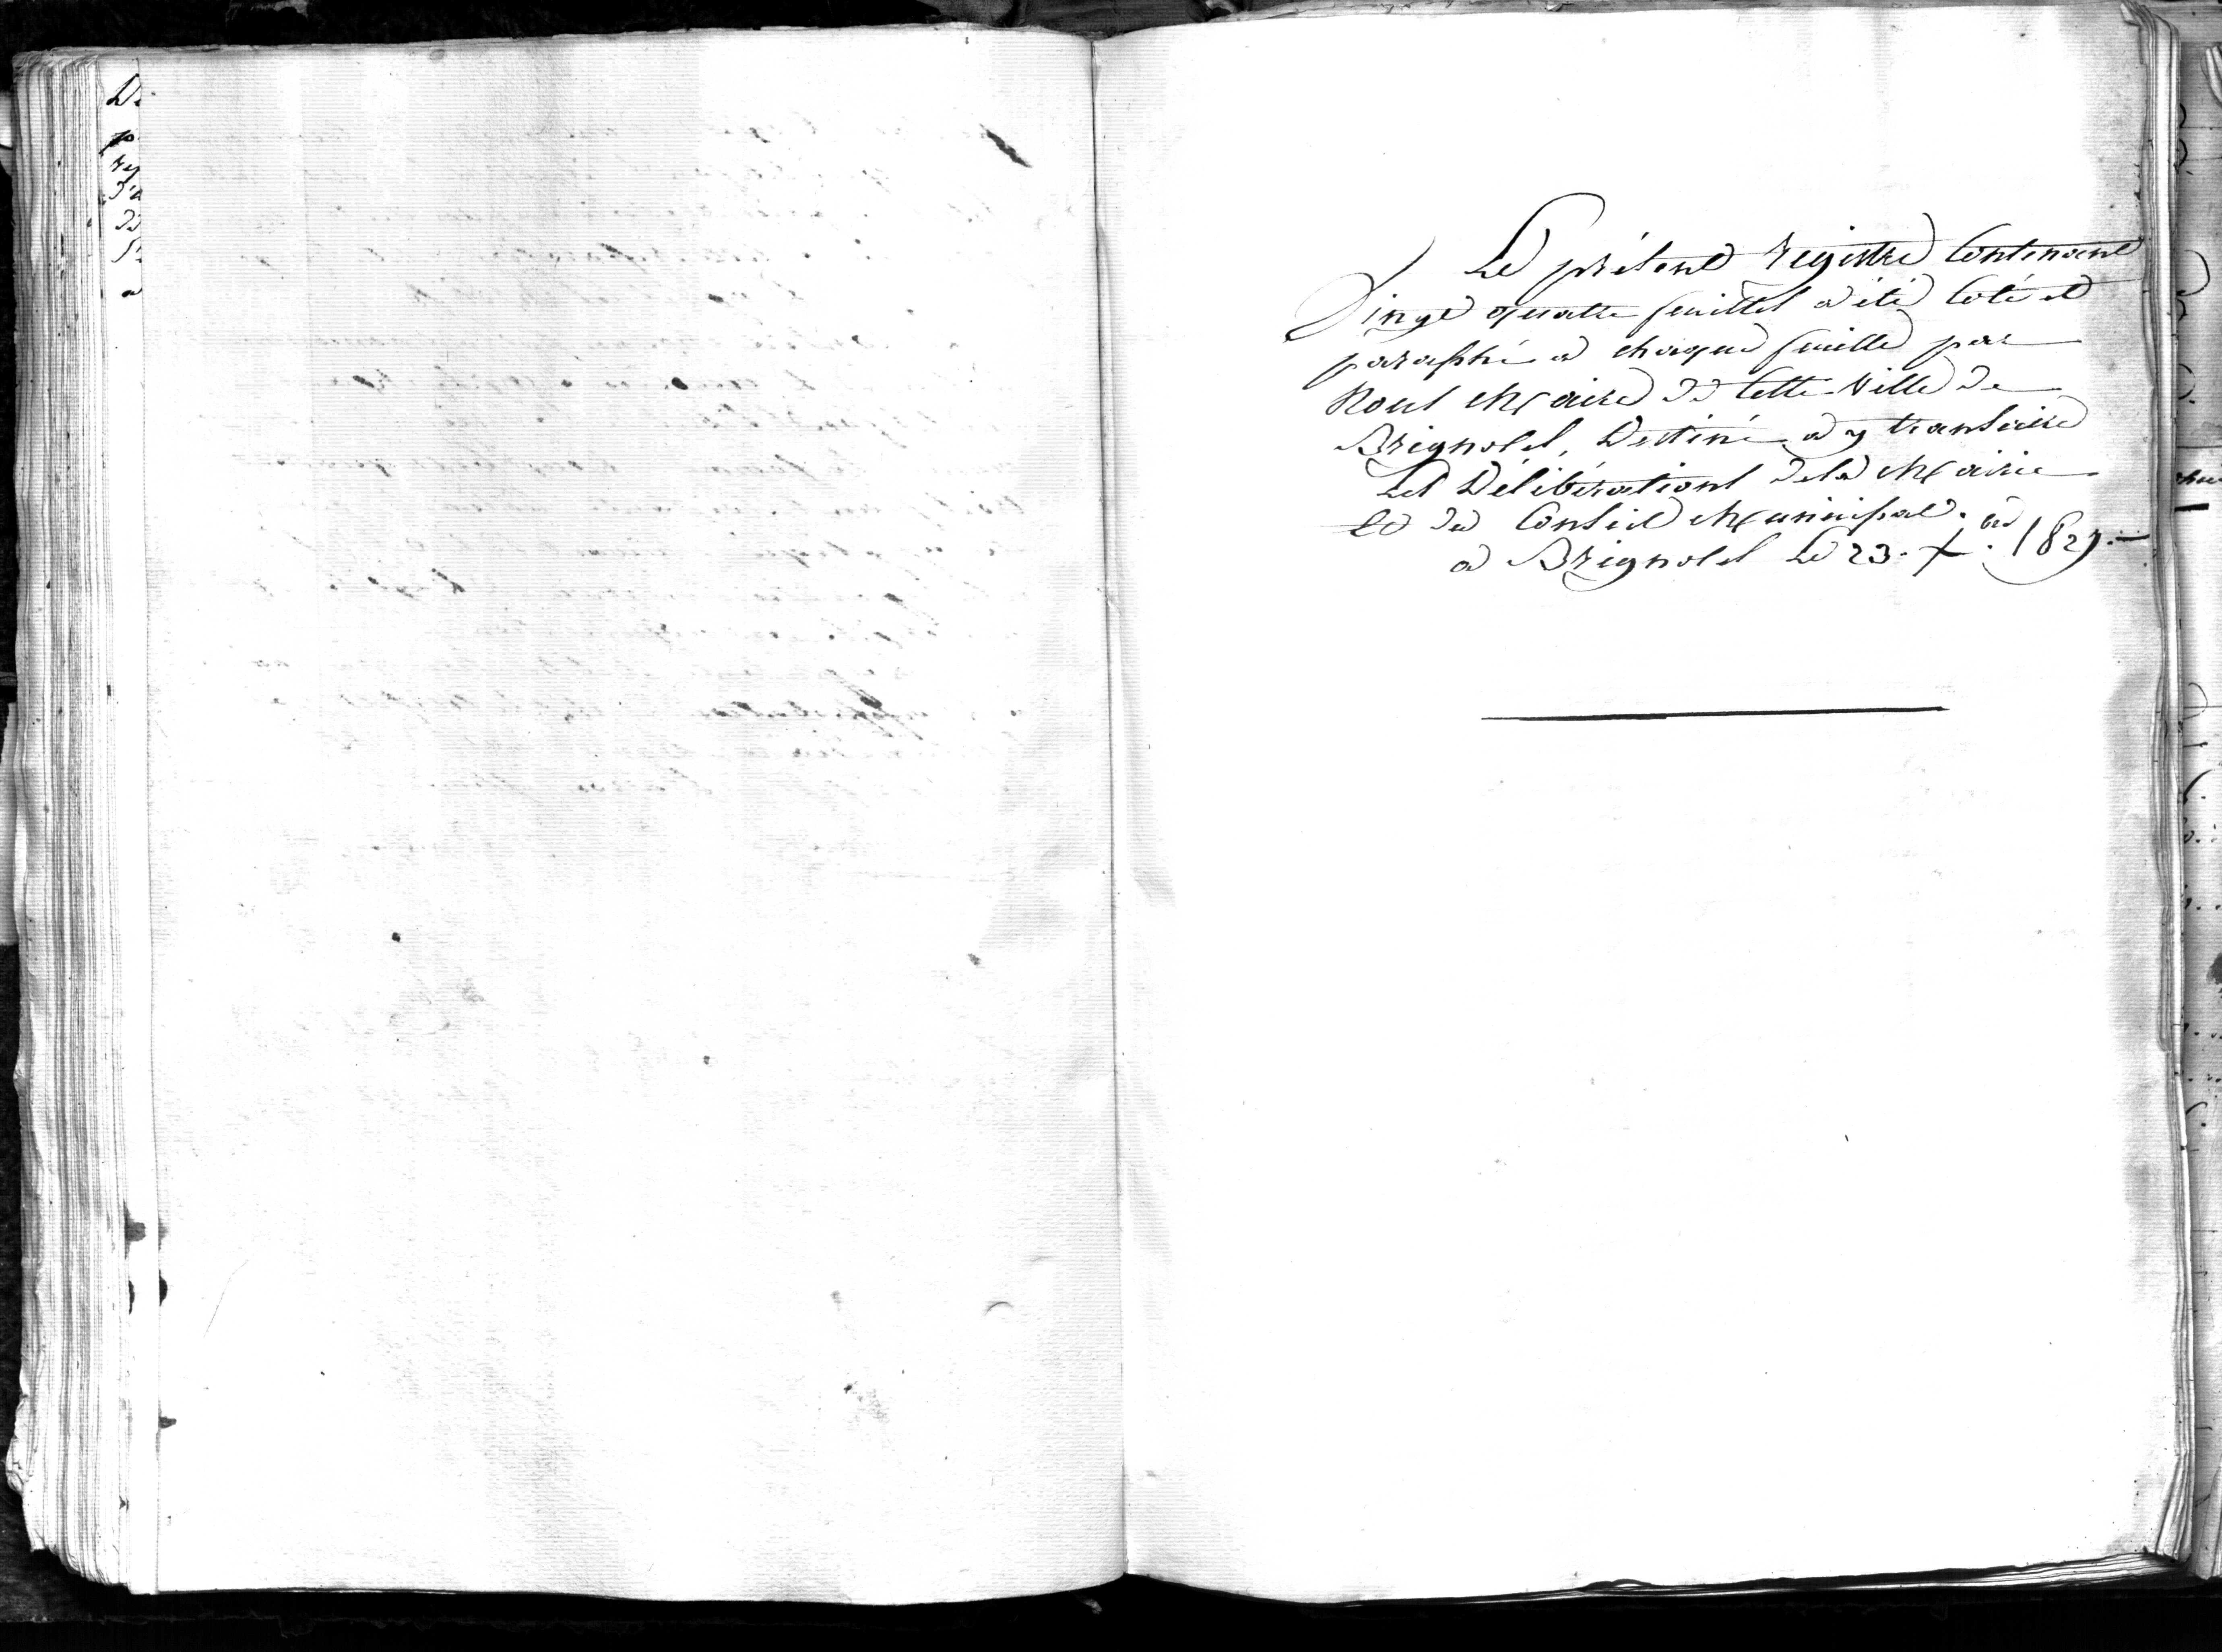 Le présent registre Contenant
Vingt quatre feuillets a été Coté et
paraphé a chaque feuille par
Nous Maire de Cette Ville de
Brignoles, Destiné a y transcrire
Les Délibérations de la Mairie
et du Conseil Municipal.
a Brignoles Le 23. X.bre 1827.